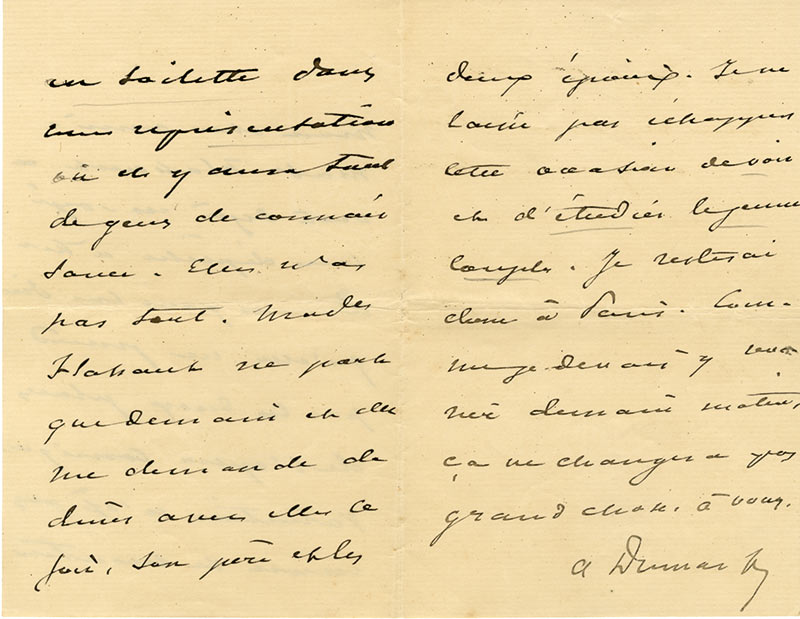 en toilette dans
une représentation
où il y aura tant
de gens de connais
sance. Ce n'est
pas tout. Mad. de
Flahault ne part
que demain et elle
me demande de
dîner avec elle ce
soir, son père et les
deux époux. Je ne
laisse pas échapper
cette occasion de voir
et d'étudier le jeune
couple. Je resterai
donc à Paris. Com-
me je devais y reve
nir demain matin,
ça ne changera pas
grand chose. à vous.
A Dumas